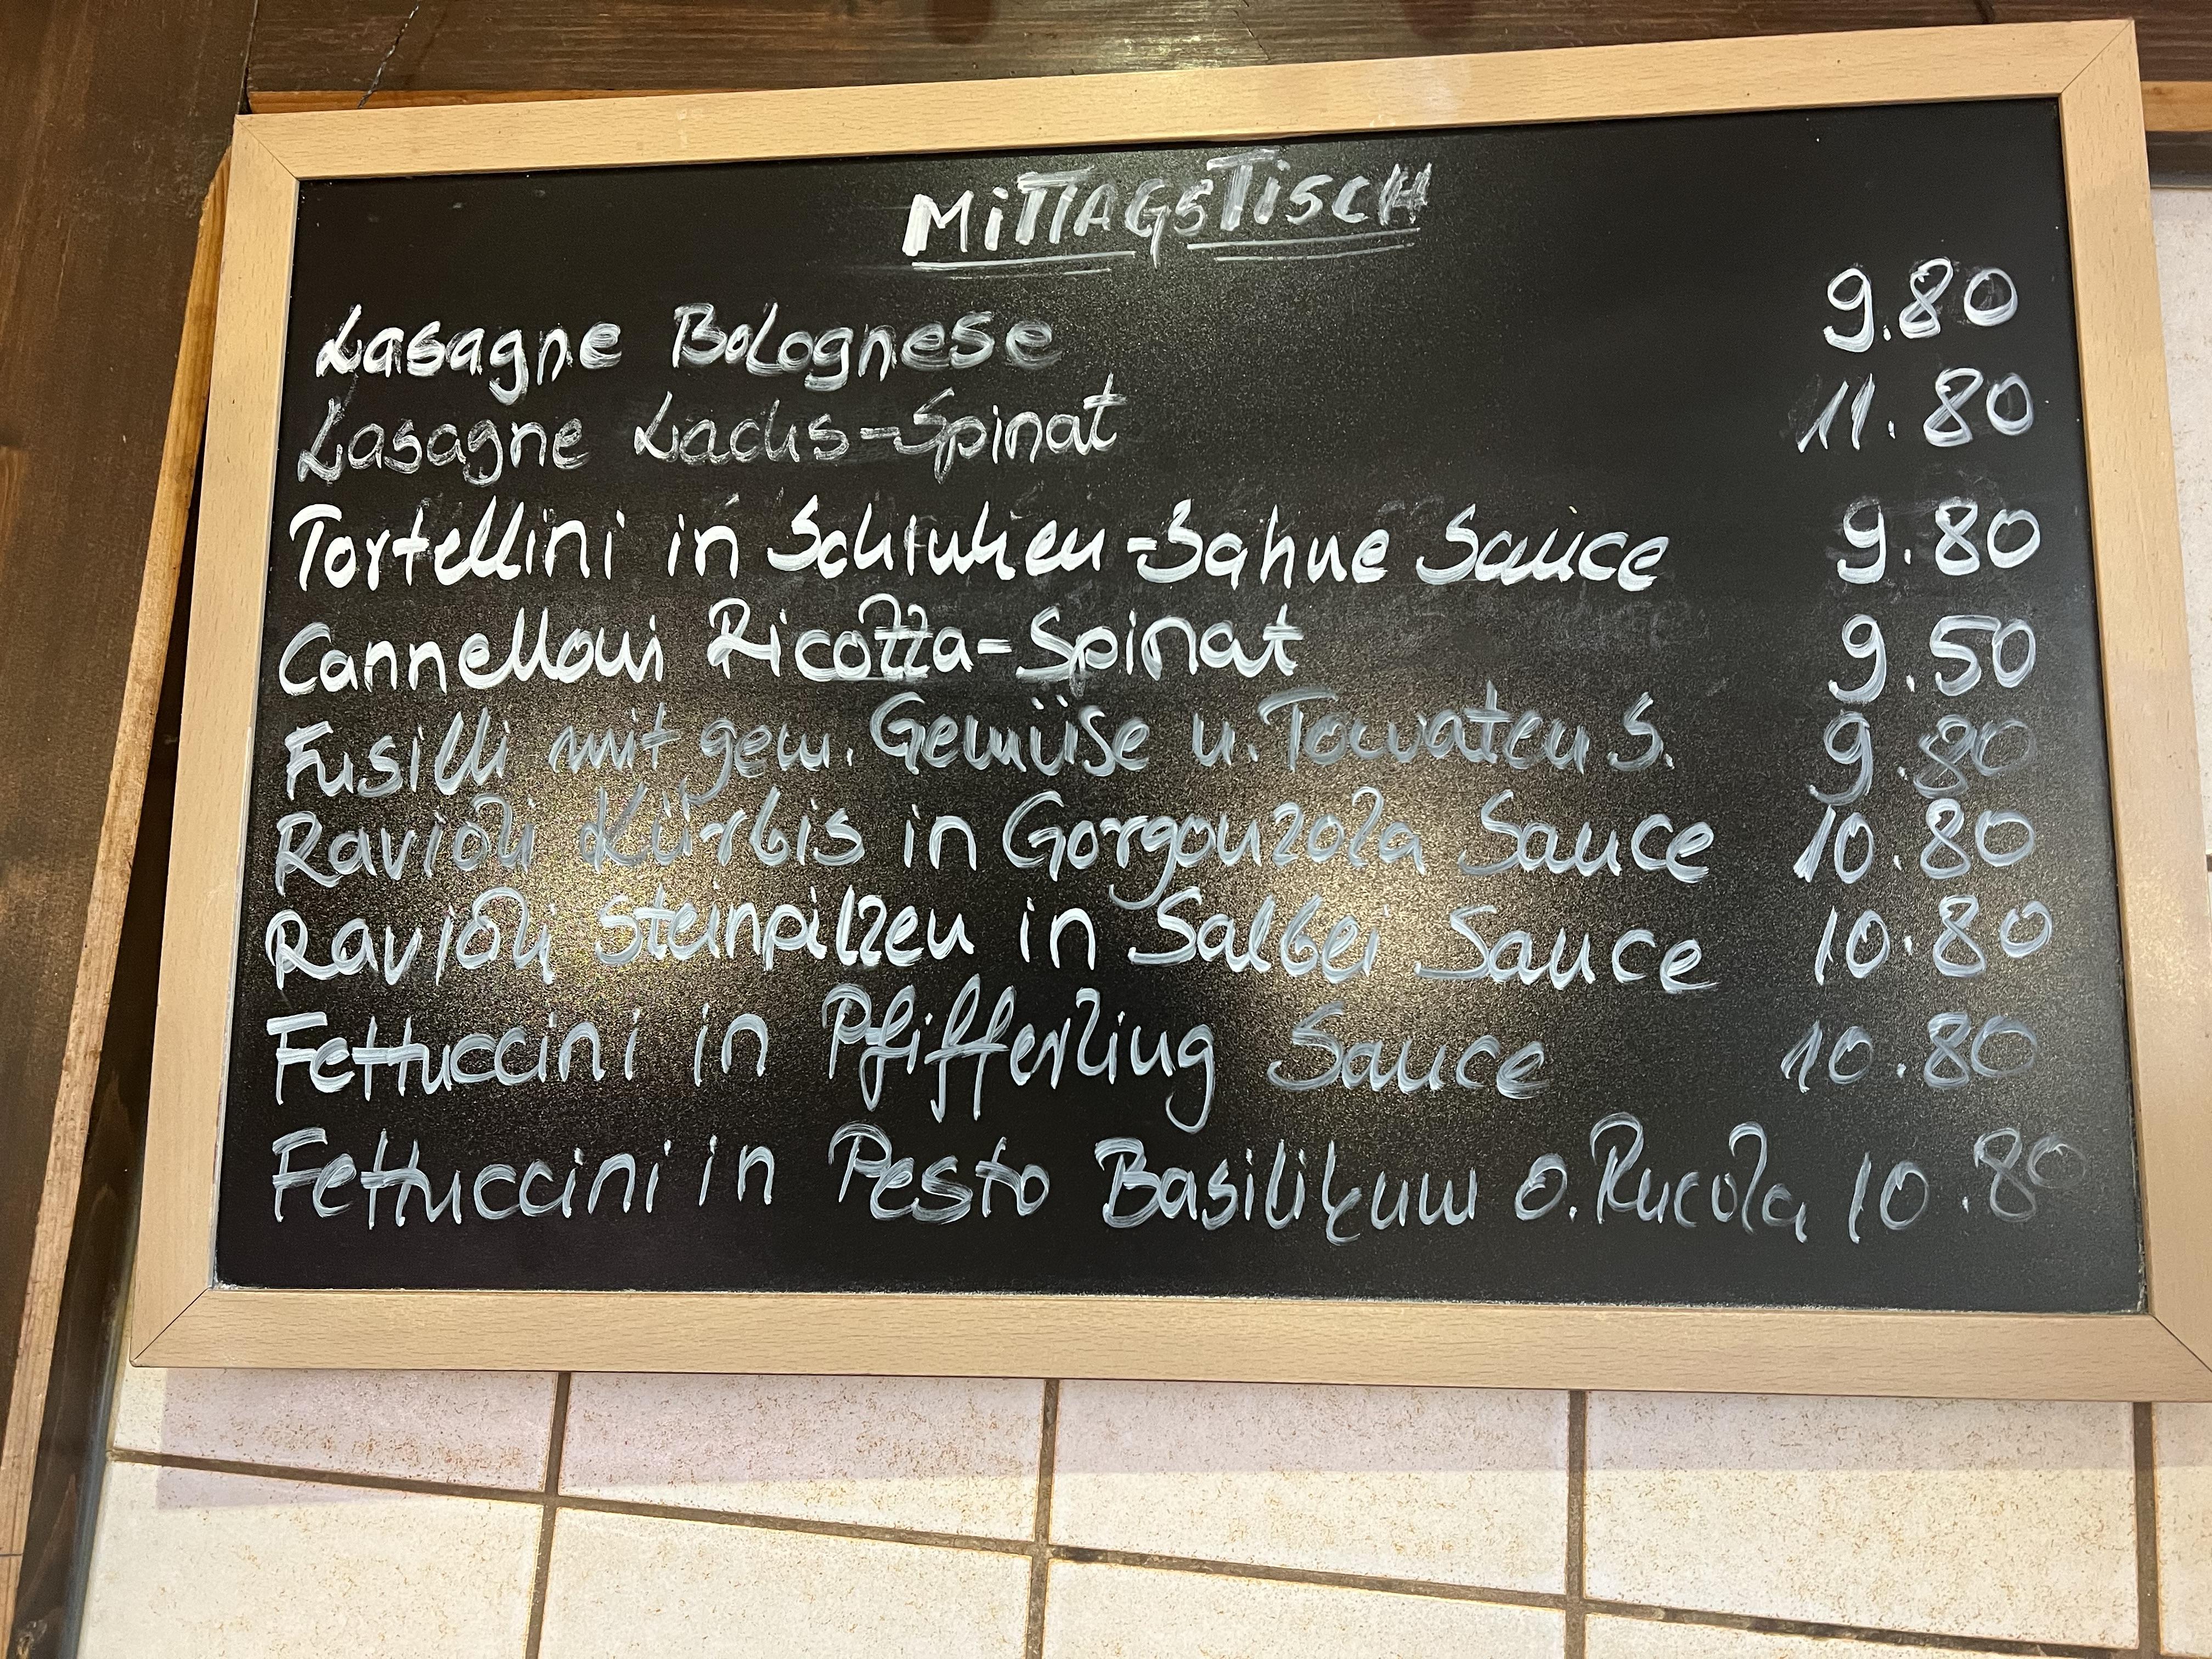 MITTAGSTISCH
Lasagne Bolognese 9.80
Lasagne Lachs-Spinat 11.80
Tortellini in Schinken-Sahne Sauce 9.80
Cannelloni Ricotta-Spinat 9.50
Fusilli mit gem. Gemüse u. Tomaten S. 9.80
Ravioli Kürbis in Gorgonzola Sauce 10.80
Ravioli Steinpilzen in Salbei Sauce 10.80
Fettuccini in Pfifferling Sauce 10.80
Fettuccini in Pesto Basilikum o. Rucola 10.80